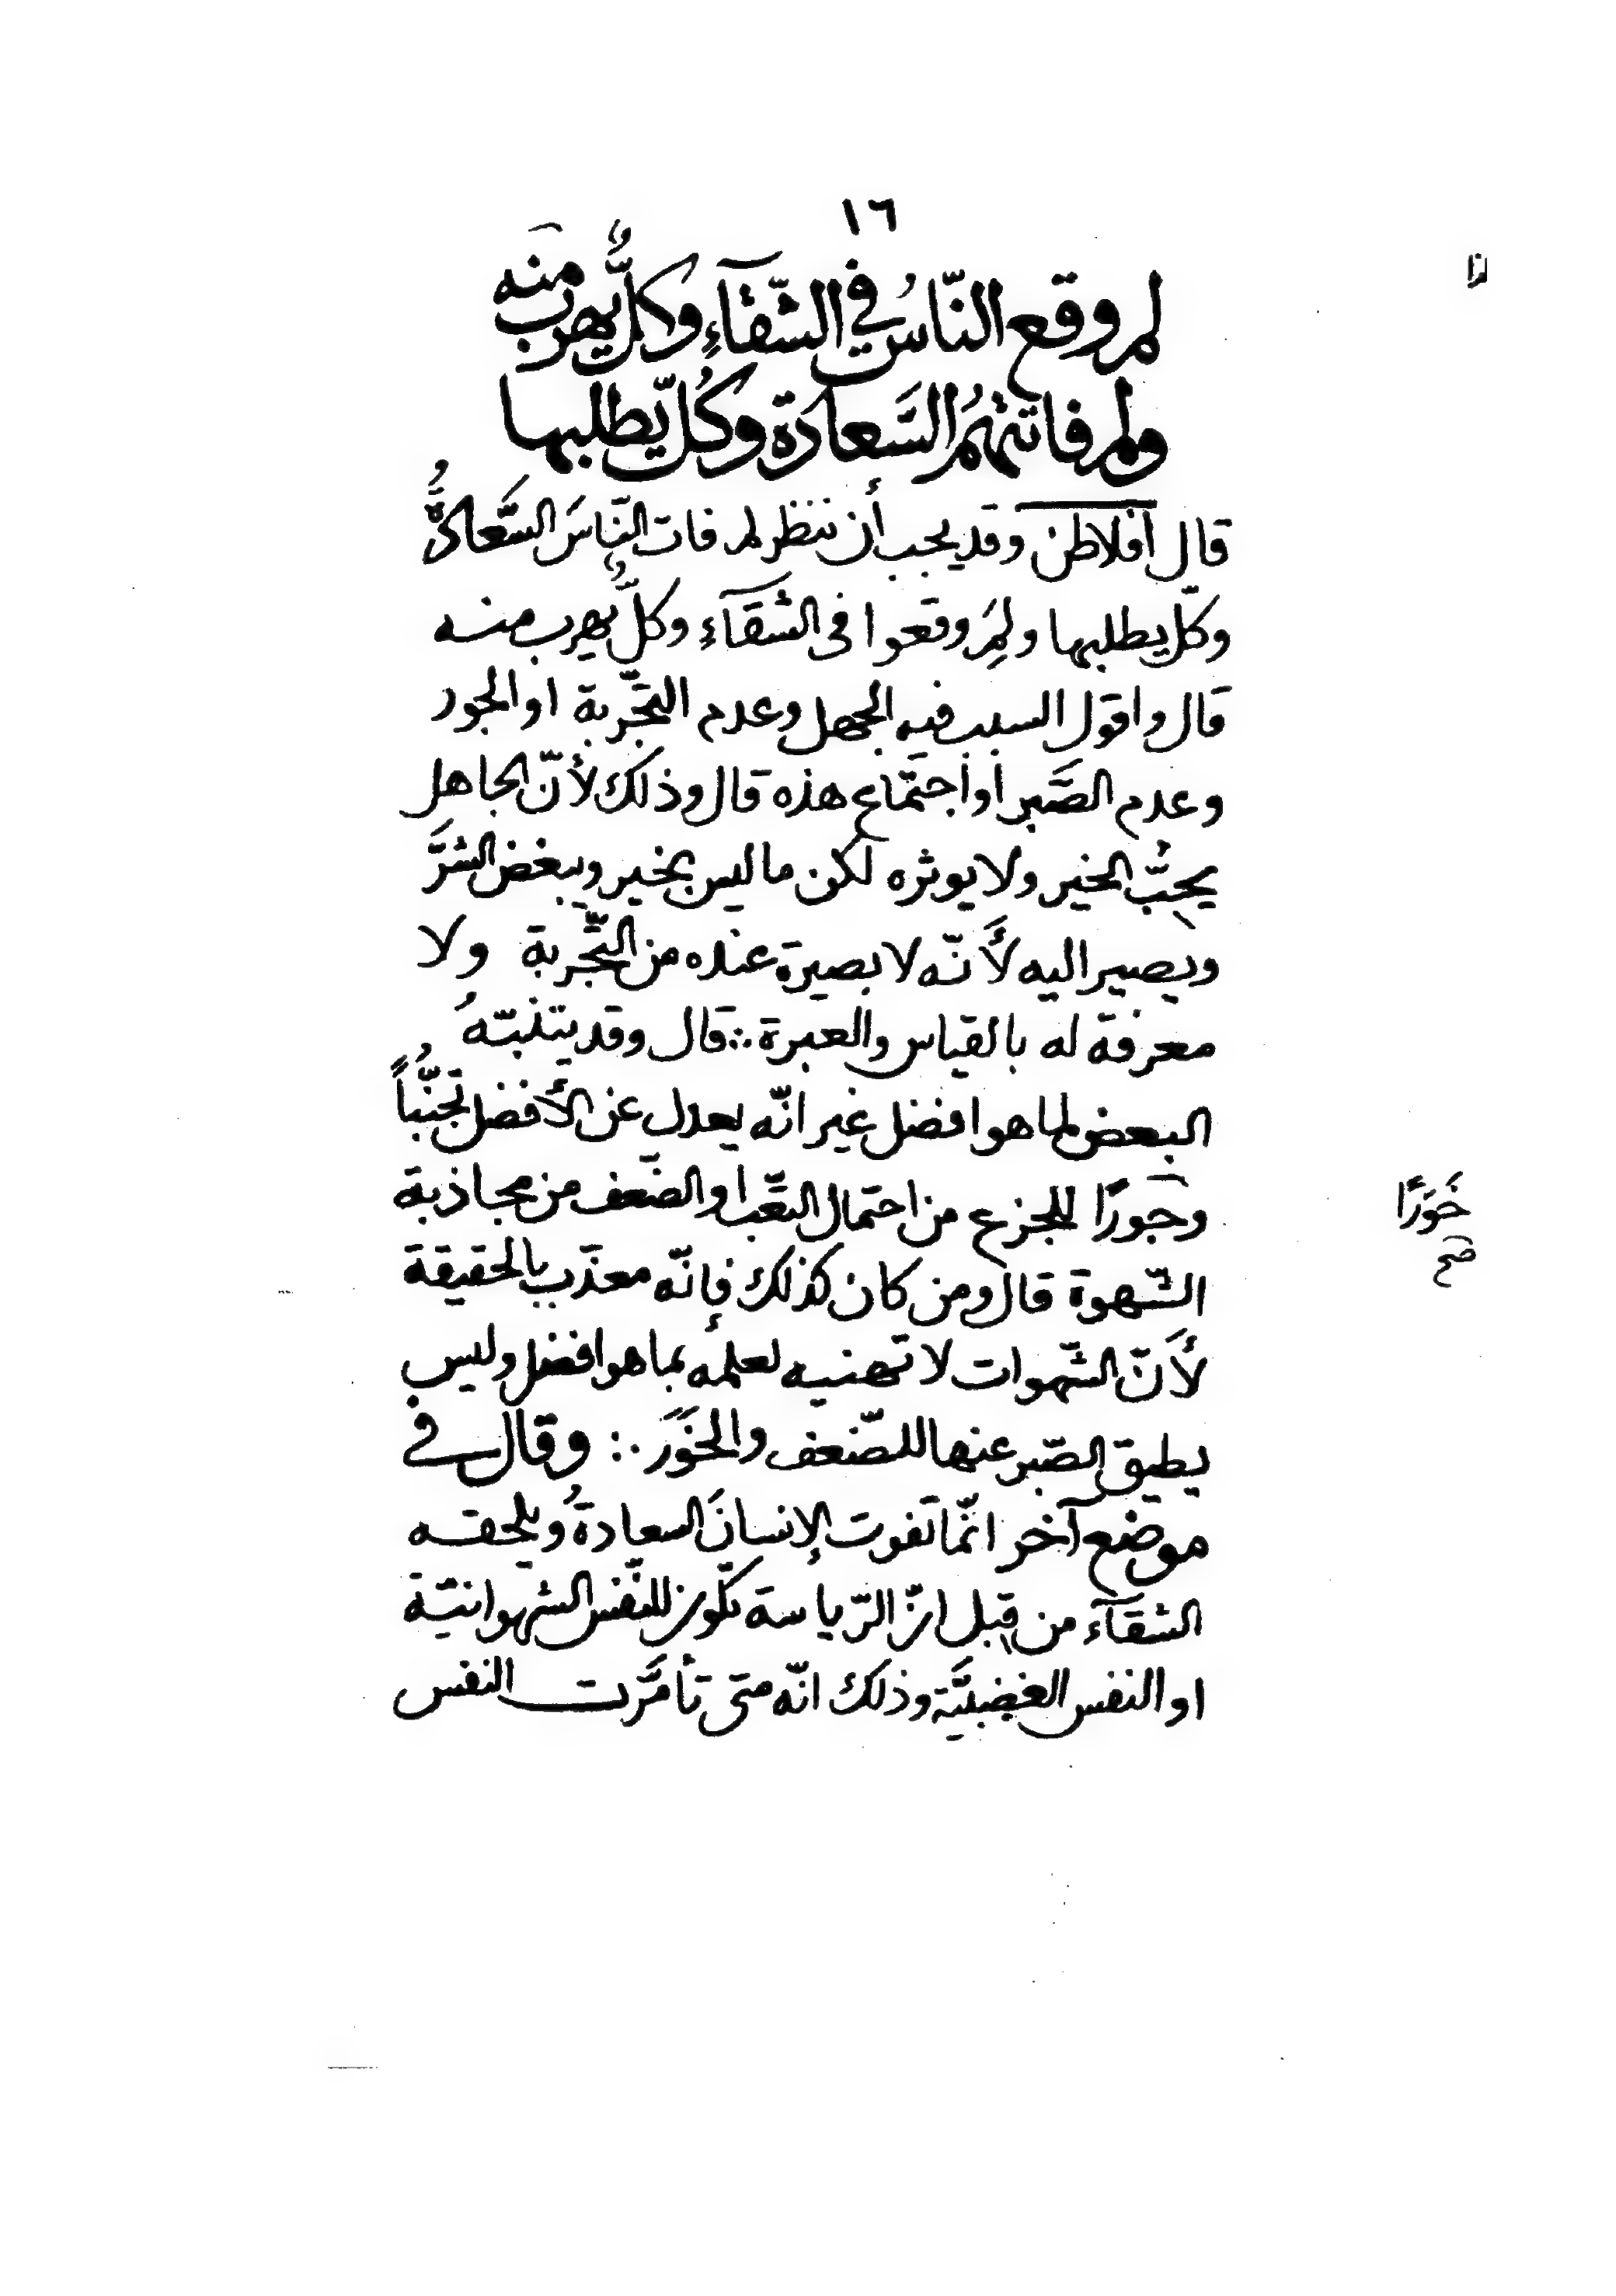 ١٦
لم وقع النّاسُ في الشّقآءِ وكلٌّ يهرب منه
ولم فاتتهُمُ السَّعادَة وكُلّ يطلبها
قال افلاطن وقد يجب أن ننظر لم فات النّاسَ السَّعادَةُ
وكلّ يطلبها ولِمَ وقعوا فى الشَّقَآءِ وكلٌّ يهرب منه
قال واقول السبب فيه الجهل وعدم التجّربة او الجور
وعدم الصَّبر او اجتماع هذه قال وذلك لأنّ الجاهل
يحبُّ الخير ولا يوثره لكن ما ليس بخير ويبغض الشرَّ
ويصير اليه لأَنّه لا بصيرة عنده من التّجربة ولا
معرفة له بالقياس والعبرة ∴ قال وقد يتنبّهُ
البعض لما هو افضل غير انّه يعدل عن الأفضل تجنُّباً
وجورًا للجزع من احتمال التّعب او الضّعف من مجاذبة
الشّهوة قال ومن كان كذلك فإنّه معذّب بالحقيقة
لأَنّ الشّهوات لا تهنيه لعلمه بما هو افضل وليس
يطيق الصّبر عنها للضّعف والخَوَر ∴ وقال في
موضع آخر انّما تفوت الإنسانَ السعادةُ ويلحقه
الشقآء من قِبل انّ الرّياسة تكون للنّفس الشهوانيّة
او النفس الغضبيَّة وذلك انّه متى تأمَّرت النفس
خَوَرًا
صح